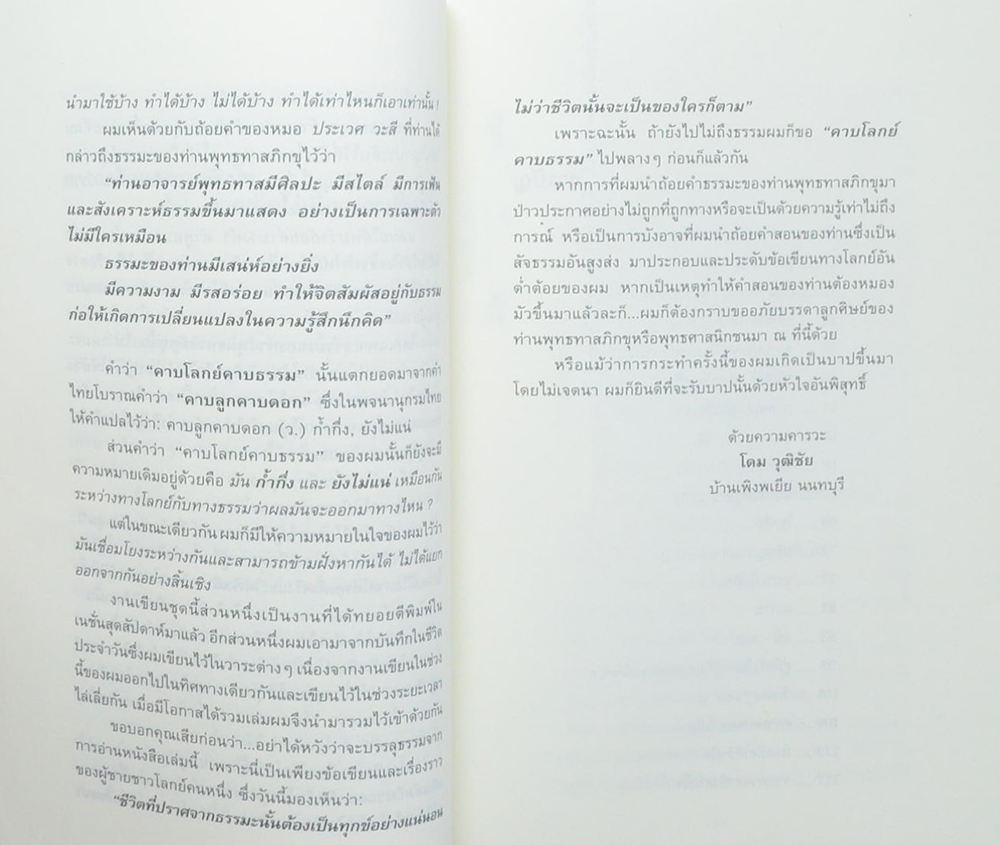 นำมาใช้บ้าง ทำได้บ้าง ไม่ได้บ้าง ทำได้เท่าไหนก็เอาเท่านั้น!
ผมเห็นด้วยกับถ้อยคำของหมอ ประเวศ วะสี ที่ท่านได้
กล่าวถึงธรรมะของท่านพุทธทาสภิกขุไว้ว่า
“ท่านอาจารย์พุทธทาสมีศิลปะ มีสไตล์ มีการเฟ้น
และสังเคราะห์ธรรมขึ้นมาแสดง อย่างเป็นการเฉพาะตัว
ไม่มีใครเหมือน
ธรรมะของท่านมีเสน่ห์อย่างยิ่ง
มีความงาม มีรสอร่อย ทำให้จิตสัมผัสอยู่กับธรรม
ก่อให้เกิดการเปลี่ยนแปลงในความรู้สึกนึกคิด”
คำว่า “คาบโลกย์คาบธรรม” นั้นแตกยอดมาจากคำ
ไทยโบราณคำว่า “คาบลูกคาบดอก” ซึ่งในพจนานุกรมไทย
ให้คำแปลไว้ว่า: คาบลูกคาบดอก (ว.) ก้ำกึ่ง, ยังไม่แน่
ส่วนคำว่า “คาบโลกย์คาบธรรม” ของผมนั้นก็ยังจะมี
ความหมายเดิมอยู่ด้วยคือ มัน ก้ำกึ่ง และ ยังไม่แน่ เหมือนกัน
ระหว่างทางโลกย์กับทางธรรมว่าผลมันจะออกมาทางไหน ?
แต่ในขณะเดียวกัน ผมก็มีให้ความหมายในใจของผมไว้ว่า
มันเชื่อมโยงระหว่างกันและสามารถข้ามฝั่งหากันได้ ไม่ได้แยก
ออกจากกันอย่างสิ้นเชิง
งานเขียนชุดนี้ส่วนหนึ่งเป็นงานที่ได้ทยอยตีพิมพ์ใน
เนชั่นสุดสัปดาห์มาแล้ว อีกส่วนหนึ่งผมเอามาจากบันทึกในชีวิต
ประจำวันซึ่งผมเขียนไว้ในวาระต่างๆ เนื่องจากงานเขียนในช่วง
นี้ของผมออกไปในทิศทางเดียวกันและเขียนไว้ในช่วงระยะเวลา
ไล่เลี่ยกัน เมื่อมีโอกาสได้รวมเล่มผมจึงนำมารวมไว้เข้าด้วยกัน
ขอบอกคุณเสียก่อนว่า...อย่าได้หวังว่าจะบรรลุธรรมจาก
การอ่านหนังสือเล่มนี้ เพราะนี่เป็นเพียงข้อเขียนและเรื่องราว
ของผู้ชายชาวโลกย์คนหนึ่ง ซึ่งวันนี้มองเห็นว่า:
“ชีวิตที่ปราศจากธรรมะนั้นต้องเป็นทุกข์อย่างแน่นอน
ไม่ว่าชีวิตนั้นจะเป็นของใครก็ตาม”
เพราะฉะนั้น ถ้ายังไปไม่ถึงธรรมผมก็ขอ “คาบโลกย์
คาบธรรม” ไปพลางๆ ก่อนก็แล้วกัน
หากการที่ผมนำถ้อยคำธรรมะของท่านพุทธทาสภิกขุมา
ป่าวประกาศอย่างไม่ถูกที่ถูกทางหรือจะเป็นด้วยความรู้เท่าไม่ถึง
การณ์ หรือเป็นการบังอาจที่ผมนำถ้อยคำสอนของท่านซึ่งเป็น
สัจธรรมอันสูงส่ง มาประกอบและประดับข้อเขียนทางโลกย์อัน
ต่ำต้อยของผม หากเป็นเหตุทำให้คำสอนของท่านต้องหมอง
มัวขึ้นมาแล้วละก็...ผมก็ต้องกราบขออภัยบรรดาลูกศิษย์ของ
ท่านพุทธทาสภิกขุหรือพุทธศาสนิกชนมา ณ ที่นี้ด้วย
หรือแม้ว่าการกระทำครั้งนี้ของผมเกิดเป็นบาปขึ้นมา
โดยไม่เจตนา ผมก็ยินดีที่จะรับบาปนั้นด้วยหัวใจอันพิสุทธิ์
ด้วยความคารวะ
โดม วุฒิชัย
บ้านเพิงพเยีย นนทบุรี